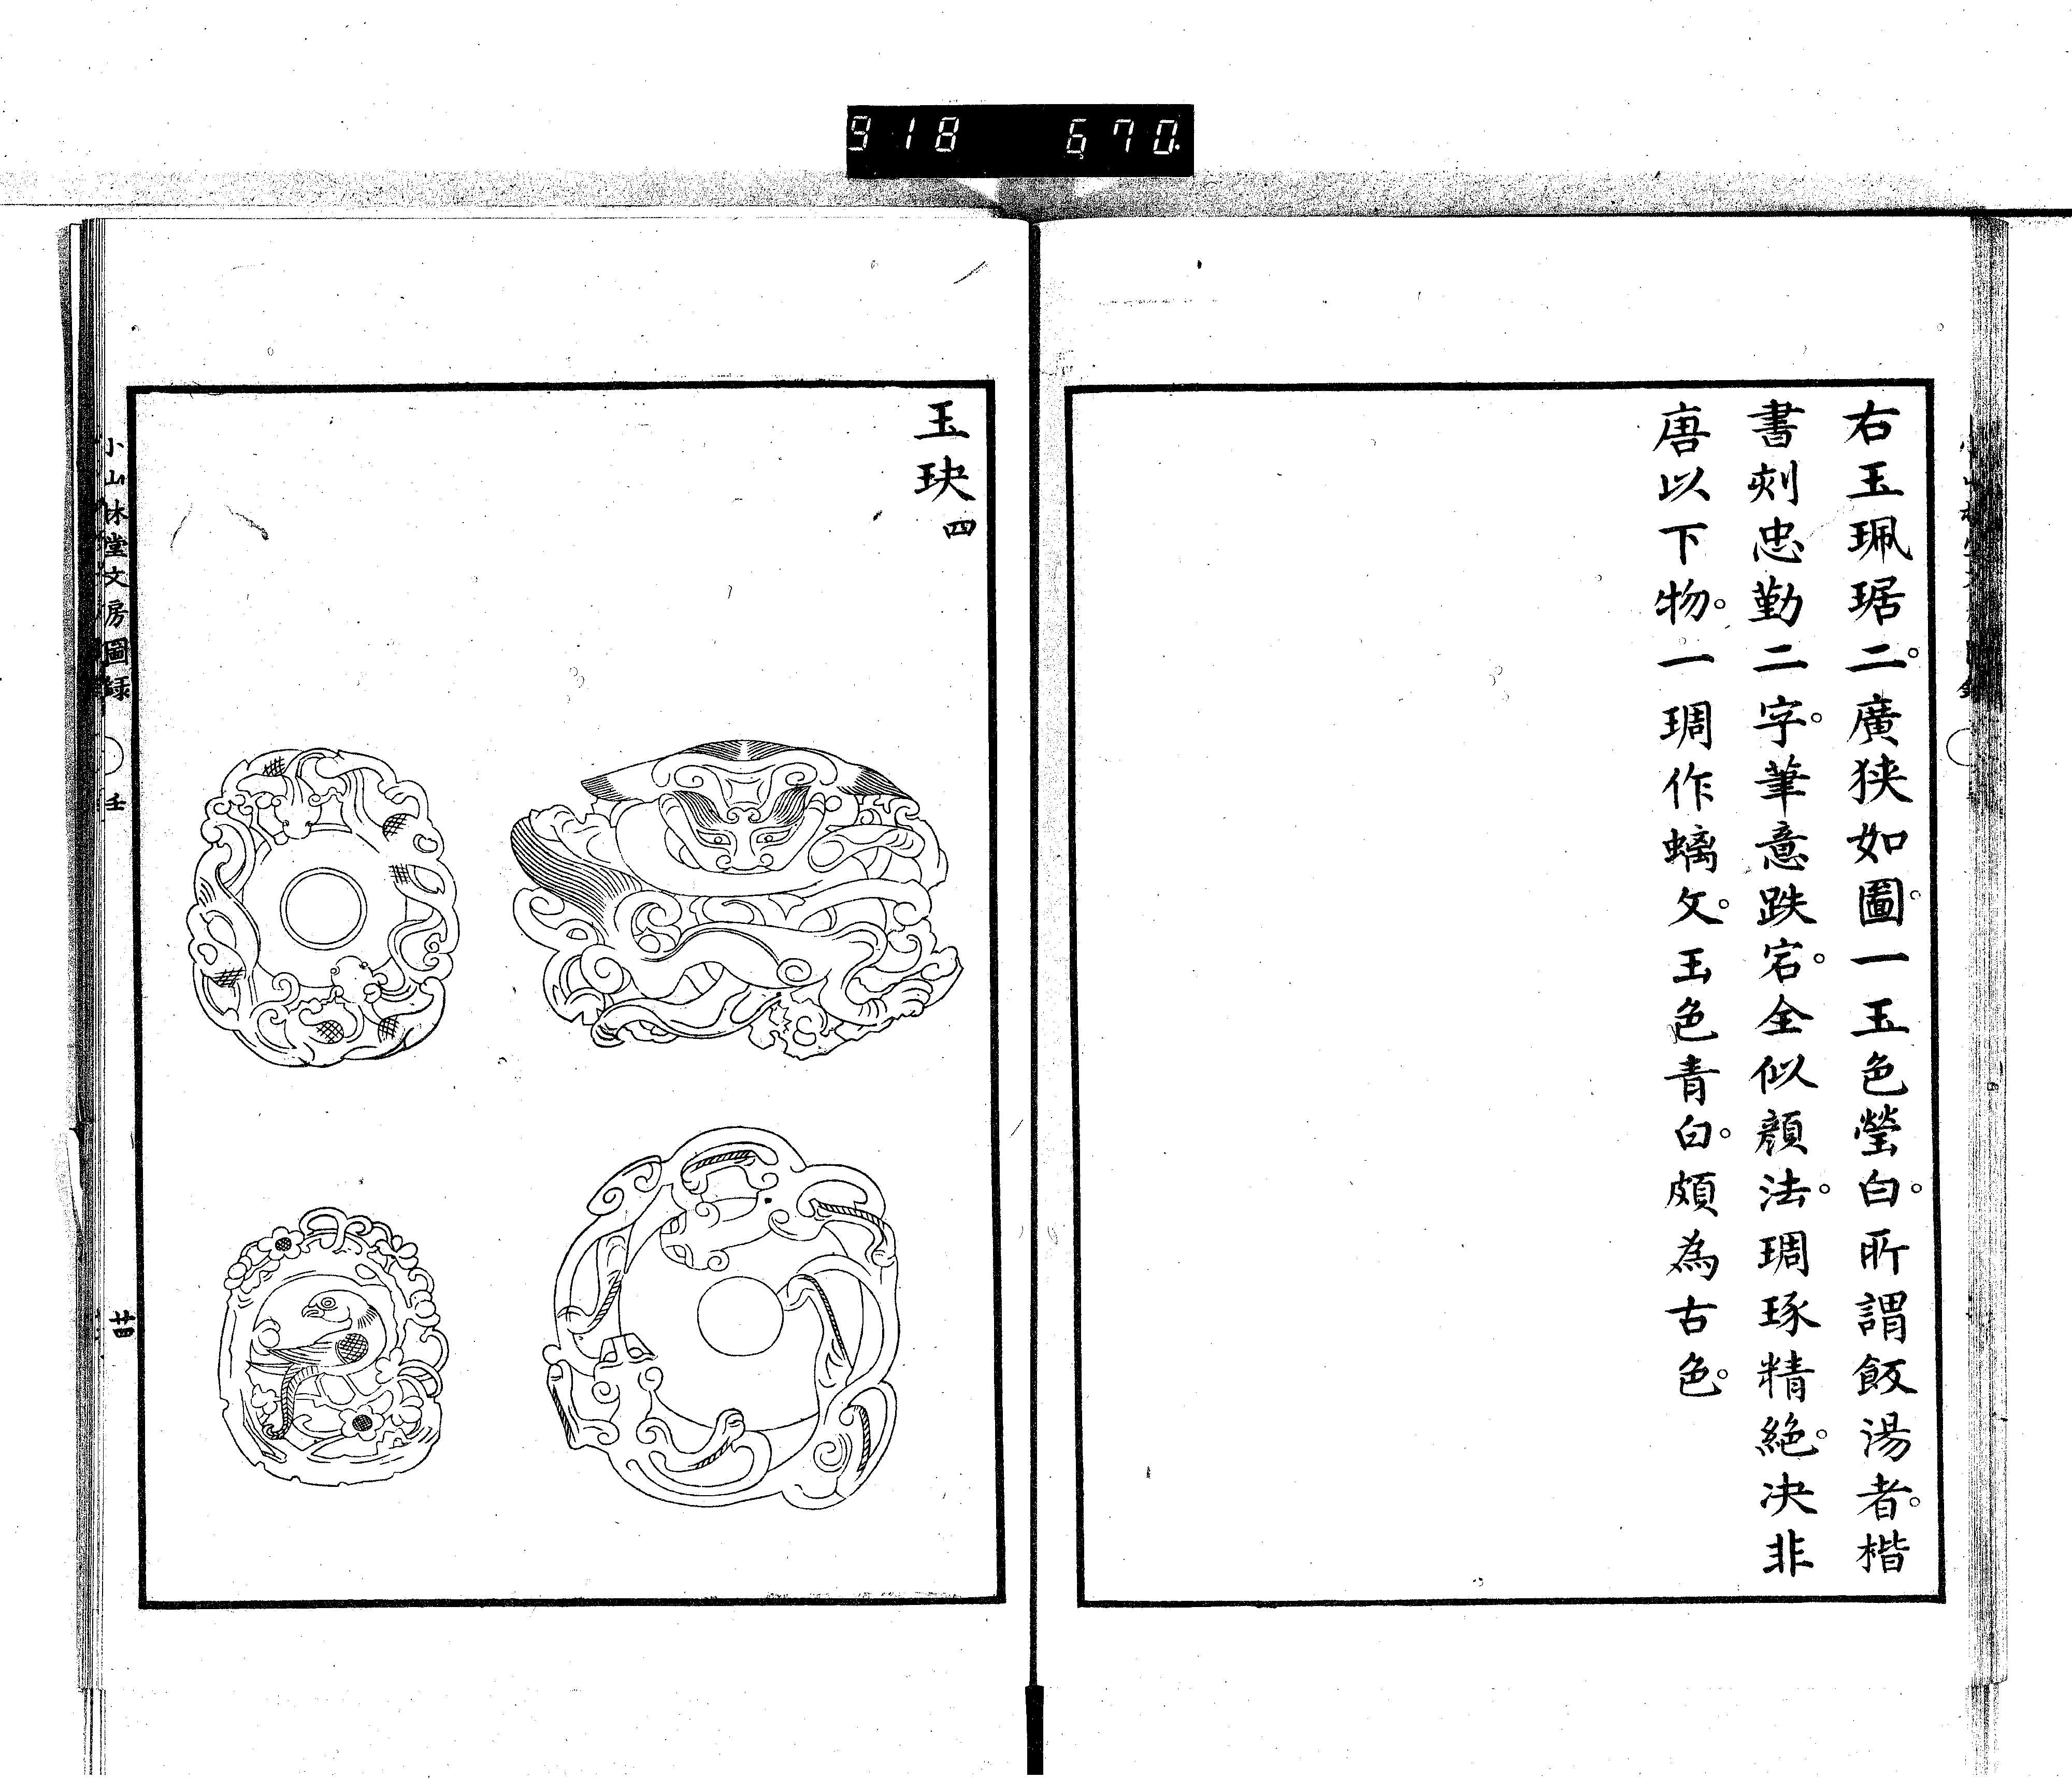 918 670.
右玉珮琚二。廣狹如圖。一玉色瑩白。所謂飯湯者。楷
書刻忠勤二字。筆意跌宕。全似顏法。琱琢精絶。决非
唐以下物。一琱作螭文。玉色青白。頗為古色。
玉玦四
小山林堂文房圖録 壬 廿四